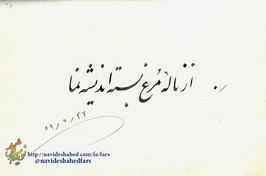 از ناله مرغ بسته اندیشه نما
۵۱/۶/۲۷
http://navideshahed.com/fa/fars
@navideshahedfars